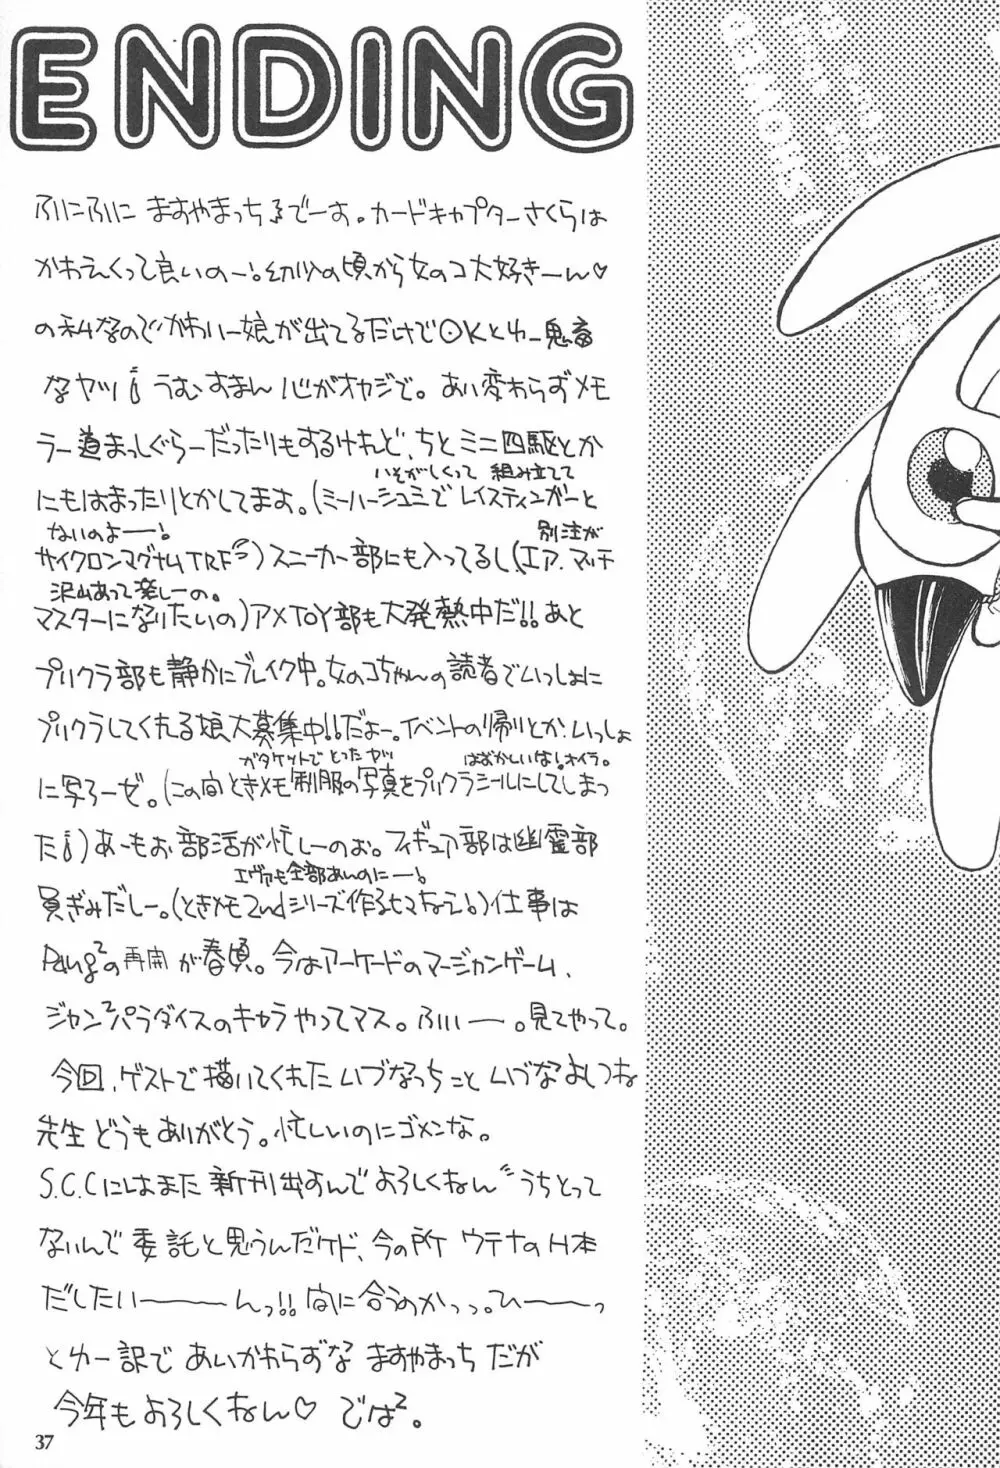 ENDING
ふにふに ますやまっちるでーす。カードキャプターさくらは
かわえくって良いのー!。幼少の頃から女のコ大好きーん♡
の私なのでかわいー娘が出てるだけでOKとゆー鬼畜
なヤツ¡¡ うむすまん 心がオヤジで。あい変わらずメモ
ラー道まっしぐらーだったりもするけれど、ちとミニ四駆とか
にもはまったりとかしてます。(ミーハーシュミで レイスティンガーと
いそがしくって 組み立てて
ないのよーー!
サイクロンマグナムTRF)スニーカー部にも入ってるし(エア.マッチ
別注が
沢山あって楽しーの。
マスターになりたいの)アメTOY部も大発熱中だ!!あと
プリクラ部も静かにブレイク中。女のコちゃんの読者でいっしょに
プリクラしてくれる娘大募集中!!だよー。イベントの帰りとか、いっしょ
に写ろーゼ。(この間ときメモ制服の写真をプリクラシールにしてしまっ
ガタケットで とったヤツ
はずかしいなしオイラ。
た¡¡)あーもお 部活が忙しーのぉ。フィギュア部は幽霊部
員ぎみだしー。(ときメモ2ndシリーズ作るヒマもねえ!。)仕事は
エヴァも全部あんのにーー!
Pang²の再開が春頃。今はアーケードのマージャンゲーム、
ジャン²パラダイスのキャラやってマス。ふぃぃーー。見てやって。
今回、ゲストで描いてくれたいづなっちこといづなよしつね
先生どうもありがとう。忙しいのにゴメンな。
S.C.Cにはまた 新刊出すんで よろしくねん〃うちとって
ないんで委託と思うんだケド、今の所 ウテナのH本
だしたいーーーーんっ!! 間に合うのかっっ。ひーーーっ
とゆー訳で あいかわらずな ますやまっち だが
今年もよろしくねん♡ では²。
37